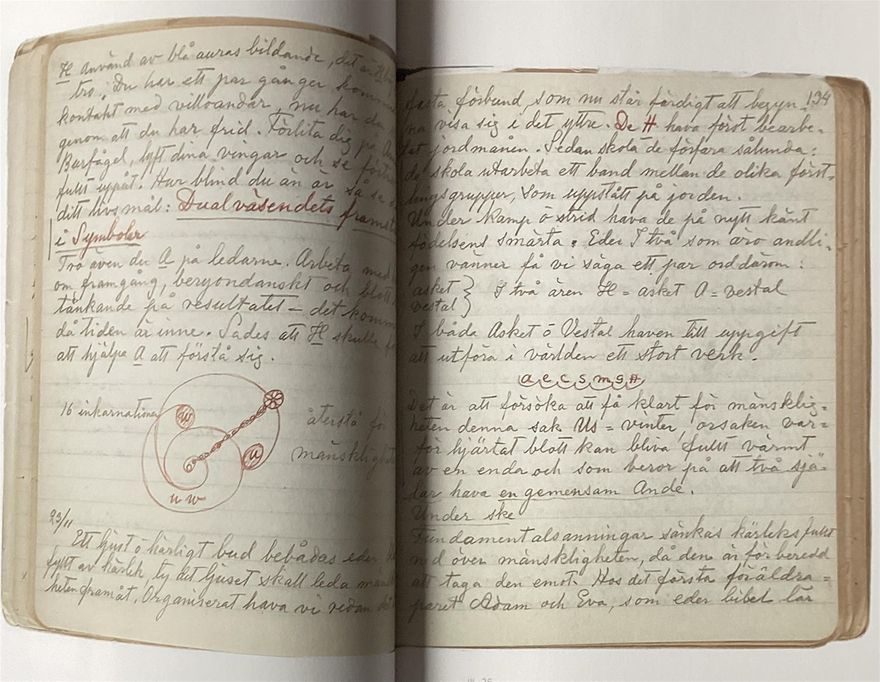 H använd av blå auras bildande, det är
tro. Du har ett par gånger
kontakt med villoandar, nu har du
genom att du har frid. Förlita dig på
Burfågel, lyft dina vingar och se
fullt uppåt. Hur blind du än är så
ditt livs mål: Dualväsendets
i Symboler
Tro även du A på ledarne. Arbeta
om framgång, och blott
tänkande på resultatet – det
då tiden är inne. Sades att H skulle
att hjälpa A att förstå sig.
16 inkarnationer
återstå för
w
u
u w
23/11
Ett ljust o härligt bud bebådas eder
fyllt av kärlek, ty det ljuset skall leda
heten framåt. Organiserat hava vi redan
134
fasta förbund, som nu står färdigt att begyn
na visa sig i det yttre. De H hava först bearbe-
tat jordmånen. Sedan skola de förfara sålunda:
de skola utarbeta ett band mellan de olika
som uppstått på jorden.
Under kamp o strid hava de på nytt känt
födelsens smärta. Eder I två som äro andli-
gen vänner få vi säga ett par ord därom:
asket
vestal } I två ären H = asket A = vestal
I båda Asket o Vestal haven till uppgift
att utföra i världen ett stort verk.
a e c s m g H
Det är att försöka att få klart för mänsklig=
heten denna sak US = vinter, orsaken var=
för hjärtat blott kan bliva fullt värmt
av en enda och som beror på att två sjä-
lar hava en gemensam Ande.
Under ske
Fundamentalsanningar sänkas kärleksfullt
ned över mänskligheten, då den är förberedd
att taga den emot. Hos det första föräldra=
paret Adam och Eva, som eder bibel lär